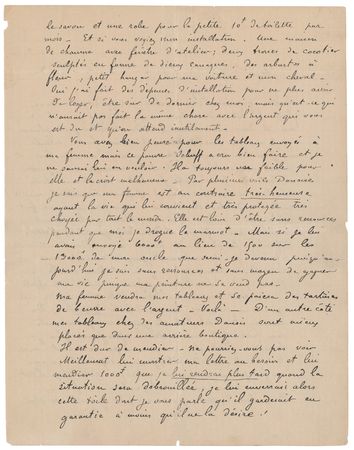 le savon et une robe pour la petite. 10f de toilette par
mois. Et si vous voyiez mon installation. Une maison
de chaume avec fenêtre d'atelier; deux troncs de cocotier
sculptés en forme de dieux canaques, des arbustes à
fleur, petit hangar pour ma voiture et mon cheval.
Oui j'ai fait des dépenses d'installation pour ne plus avoir
de loyer, être sûr du dernier chez moi, mais qu'est-ce qui
n'aurait pas fait la même chose avec l'argent que vous
est du et qu'on attend inutilement.
Vous avez bien pensé pour les tableaux envoyés à
ma femme mais ce pauvre Schuff a cru bien faire et je
ne saurai lui en vouloir. Il a toujours un faible pour
elle et la croit malheureuse. Par plusieurs voies Danoises
je sais que ma femme est au contraire très heureuse
ayant la vie qui lui convient et très protégée très
choyée par tout le monde. Elle est loin d'être sans ressources
pendant que moi je drogue le marmot. Mais si je lui
avais envoyé 6000f au lieu de 1500 sur les
13000 de mon oncle que serai-je devenu puisqu'au-
jourd'hui je suis sans ressources et sans moyen de gagner
ma vie puisque ma peinture ne se vend pas.
Ma femme vendra mes tableaux et se paiera des tartines
de beurre avec l'argent. Voilà — D'un autre côté
mes tableaux chez des amateurs Danois sont mieux
placés que dans une arrière boutique.
Il est dur de mendier. ne pouvez-vous pas voir
Meillement lui montrer ma lettre au besoin et lui
mendier 1000f que je lui rendrai plus tard quand la
situation sera débrouillée, je lui enverrais alors
cette toile dont je vous parle qu'il garderait en
garantie à moins qu'il ne la désire!